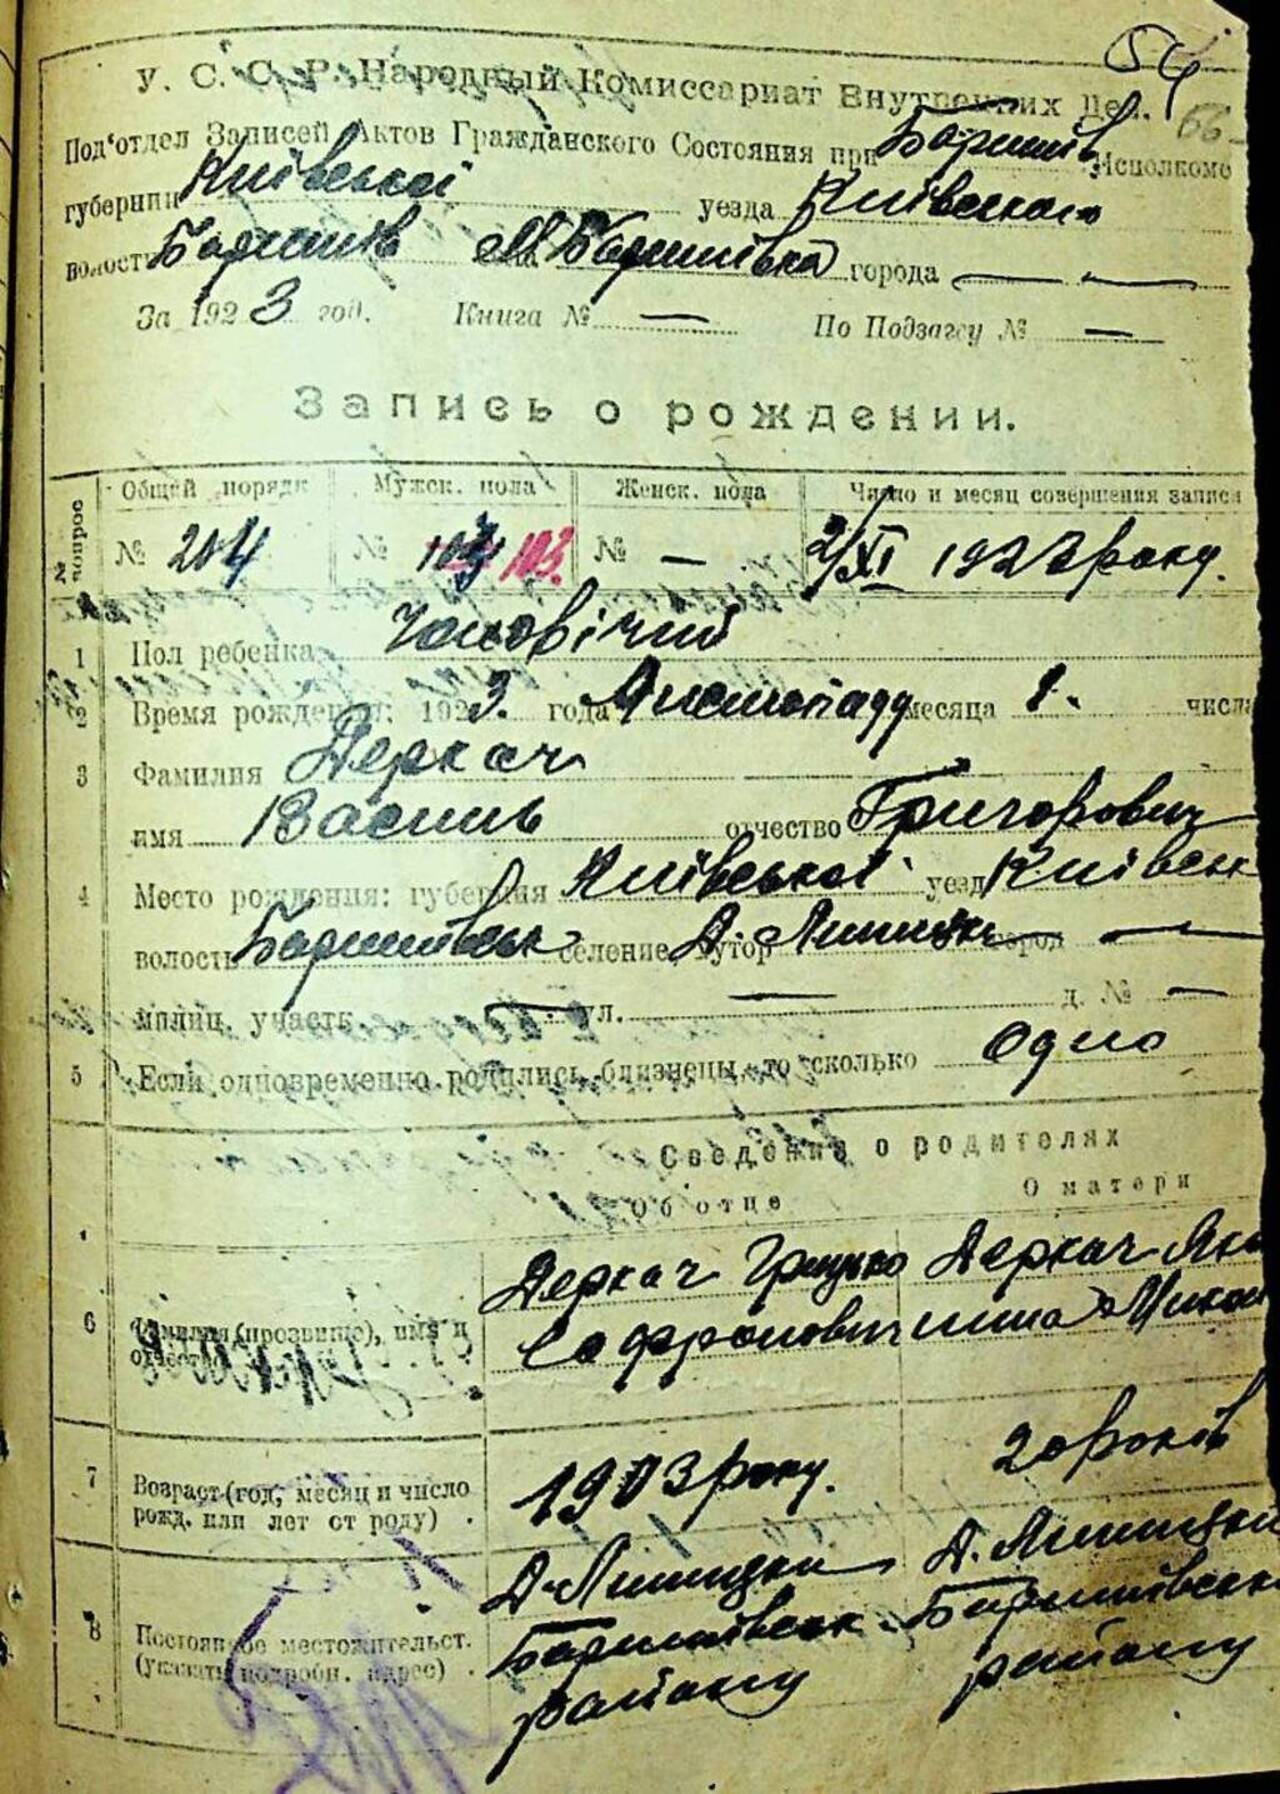 54
66
У. С. С. Р. Народный Комиссариат Внутренних Дел.
Под'отдел Записей Актов Гражданского Состояния при Баришів Исполкоме
губернии Київської уезда Київського
волости Баришів М. Баришівка города — —
За 1923 год. Книга № — По Подзагсу № —
Запись о рождении.
№ вопрос Общей порядк Мужск. пола Женск. пола Число и месяц совершения записи
№ 204 № 103 № — 2/XI 1923 року.
1 Пол ребенка Чоловічий
2 Время рождения: 1923. года Листопаду месяца 1. числа
3 Фамилия Деркач
имя Василь отчество Григорович
4 Место рождения: губерния Київської уезд Київськ
волость Баришівськ селение, хутор город —
милиц. участь — ул. — д. № —
5 Если одновременно родились близнецы, то сколько Одно
Сведения о родителях
Об отце О матери
6 Фамилия (прозвище), имя и отчество Деркач Грицько Деркач
Софронович
7 Возраст (год, месяц и число рожд. или лет от роду) . 1903 року. 20 років
8 Постоянное местожительст. (указать подробн. адрес) .
Баришівськ Баришівськ
району району